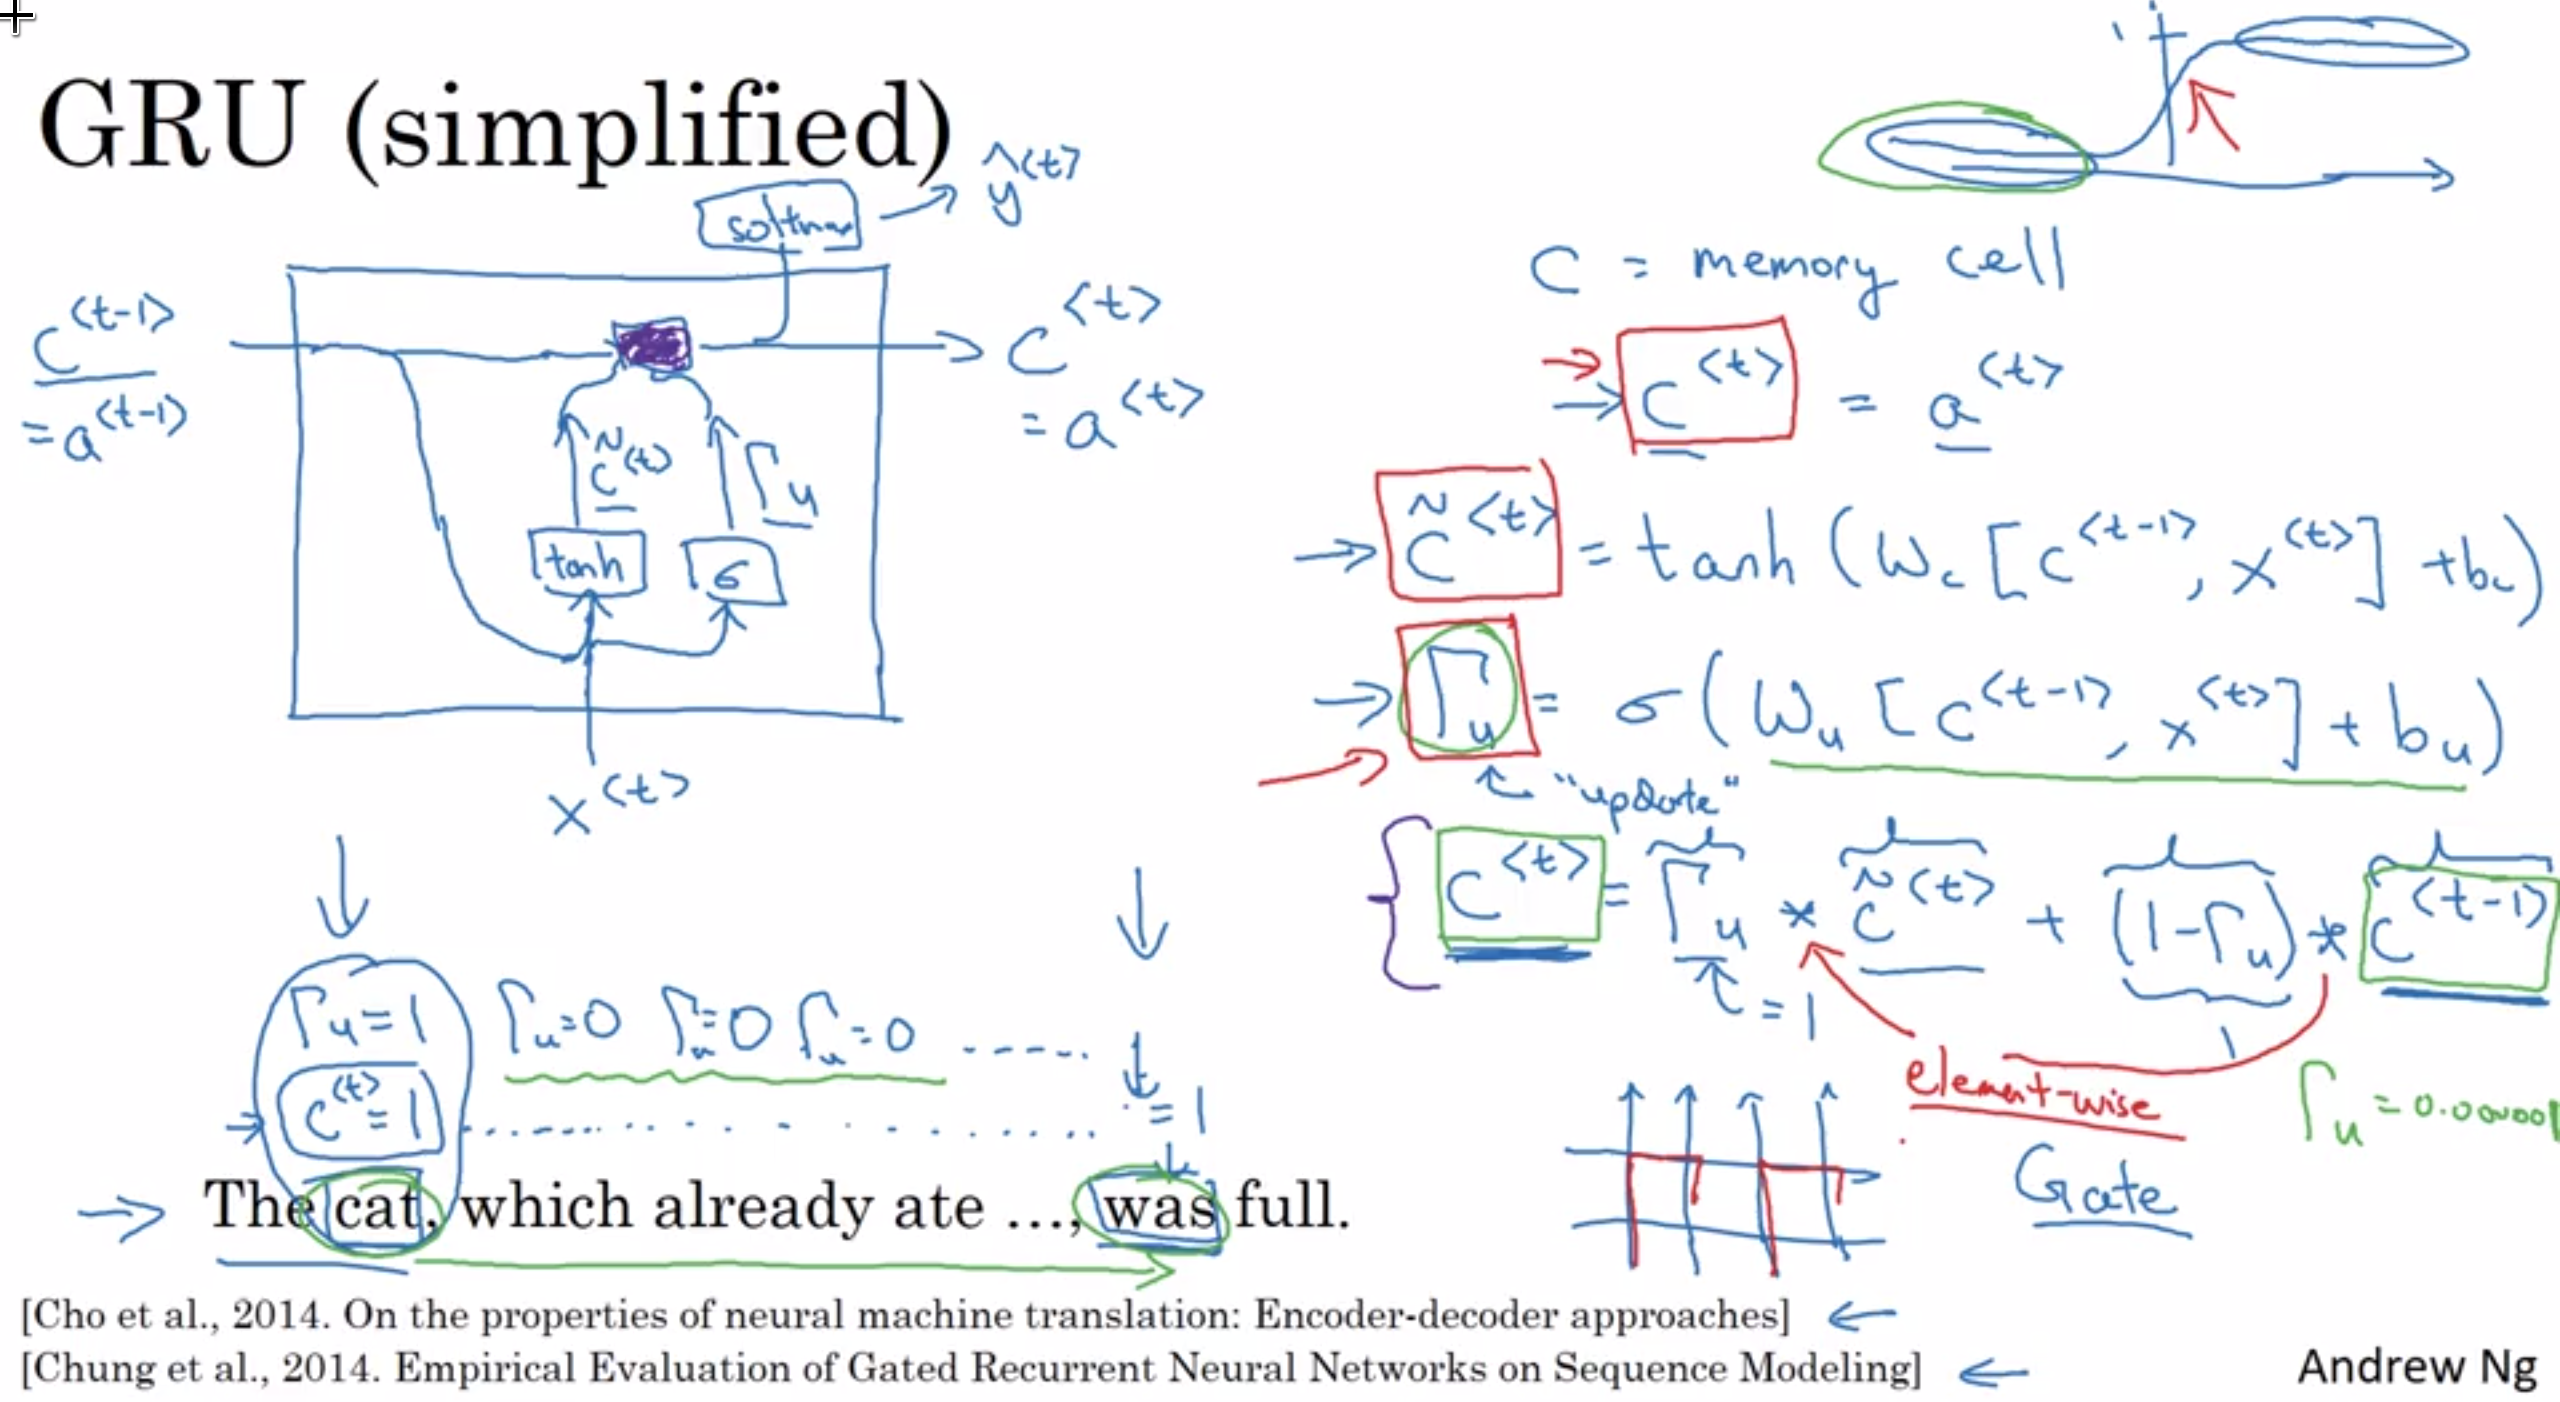 GRU (simplified)
softmax → ŷ<t>
c<t-1>
= a<t-1>
c<t>
= a<t>
c̃<t>
Γu
tanh
σ
x<t>
1
C = memory cell
→ c<t> = a<t>
→ c̃<t> = tanh (Wc [c<t-1>, x<t>] + bc)
→ Γu = σ(Wu [c<t-1>, x<t>] + bu)
"update"
c<t> = Γu * c̃<t> + (1-Γu) * c<t-1>
= 1
1
element-wise
Γu = 0.000001
Gate
Γu=1 Γu=0 Γu=0 Γu=0 .....
c<t>=1 ............ = 1
→ The cat, which already ate ..., was full.
[Cho et al., 2014. On the properties of neural machine translation: Encoder-decoder approaches] ←
[Chung et al., 2014. Empirical Evaluation of Gated Recurrent Neural Networks on Sequence Modeling] ←
Andrew Ng